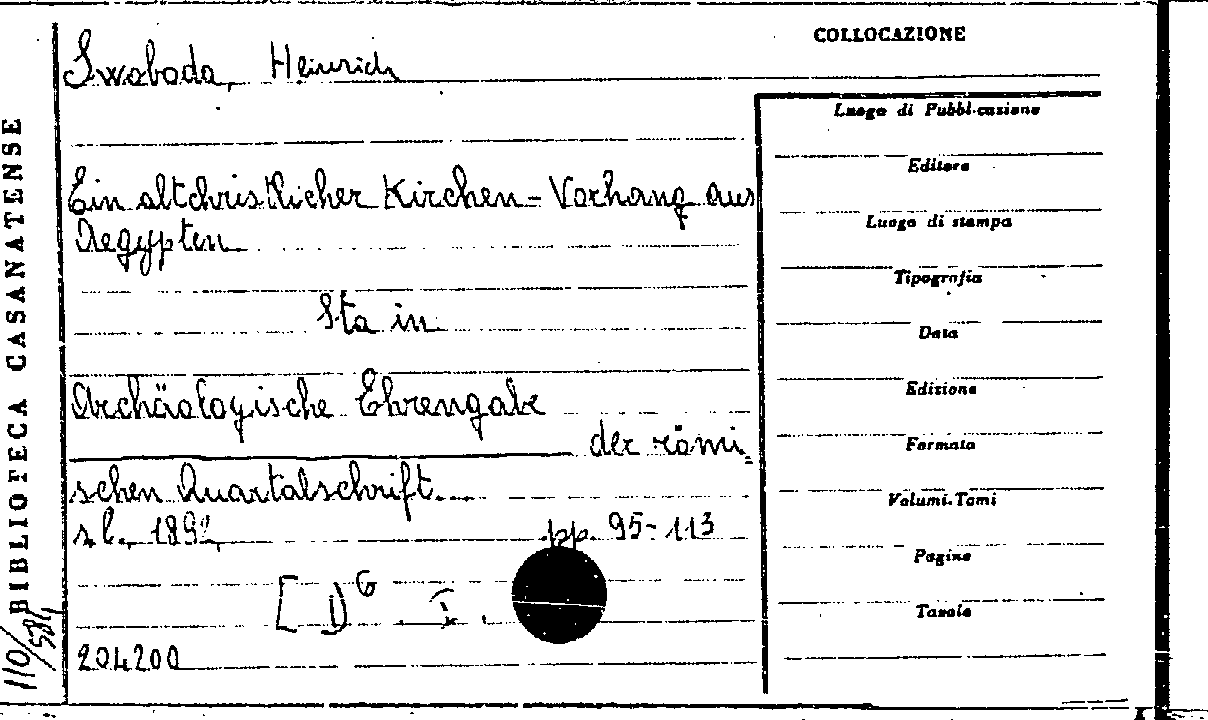 COLLOCAZIONE
Swoboda, Heinrich
Ein altchristlicher Kirchen-Vorhang aus
Aegypten
Sta in
Archäologische Ehrengabe
der römi=
schen Quartalschrift...
s.l., 1892,
pp. 95-113
[D G I.
204200
BIBLIOTECA CASANATENSE
110/581
Luogo di Pubblicazione
Editore
Luogo di stampa
Tipografia
Data
Edizione
Formato
Volumi-Tomi
Pagine
Tavole